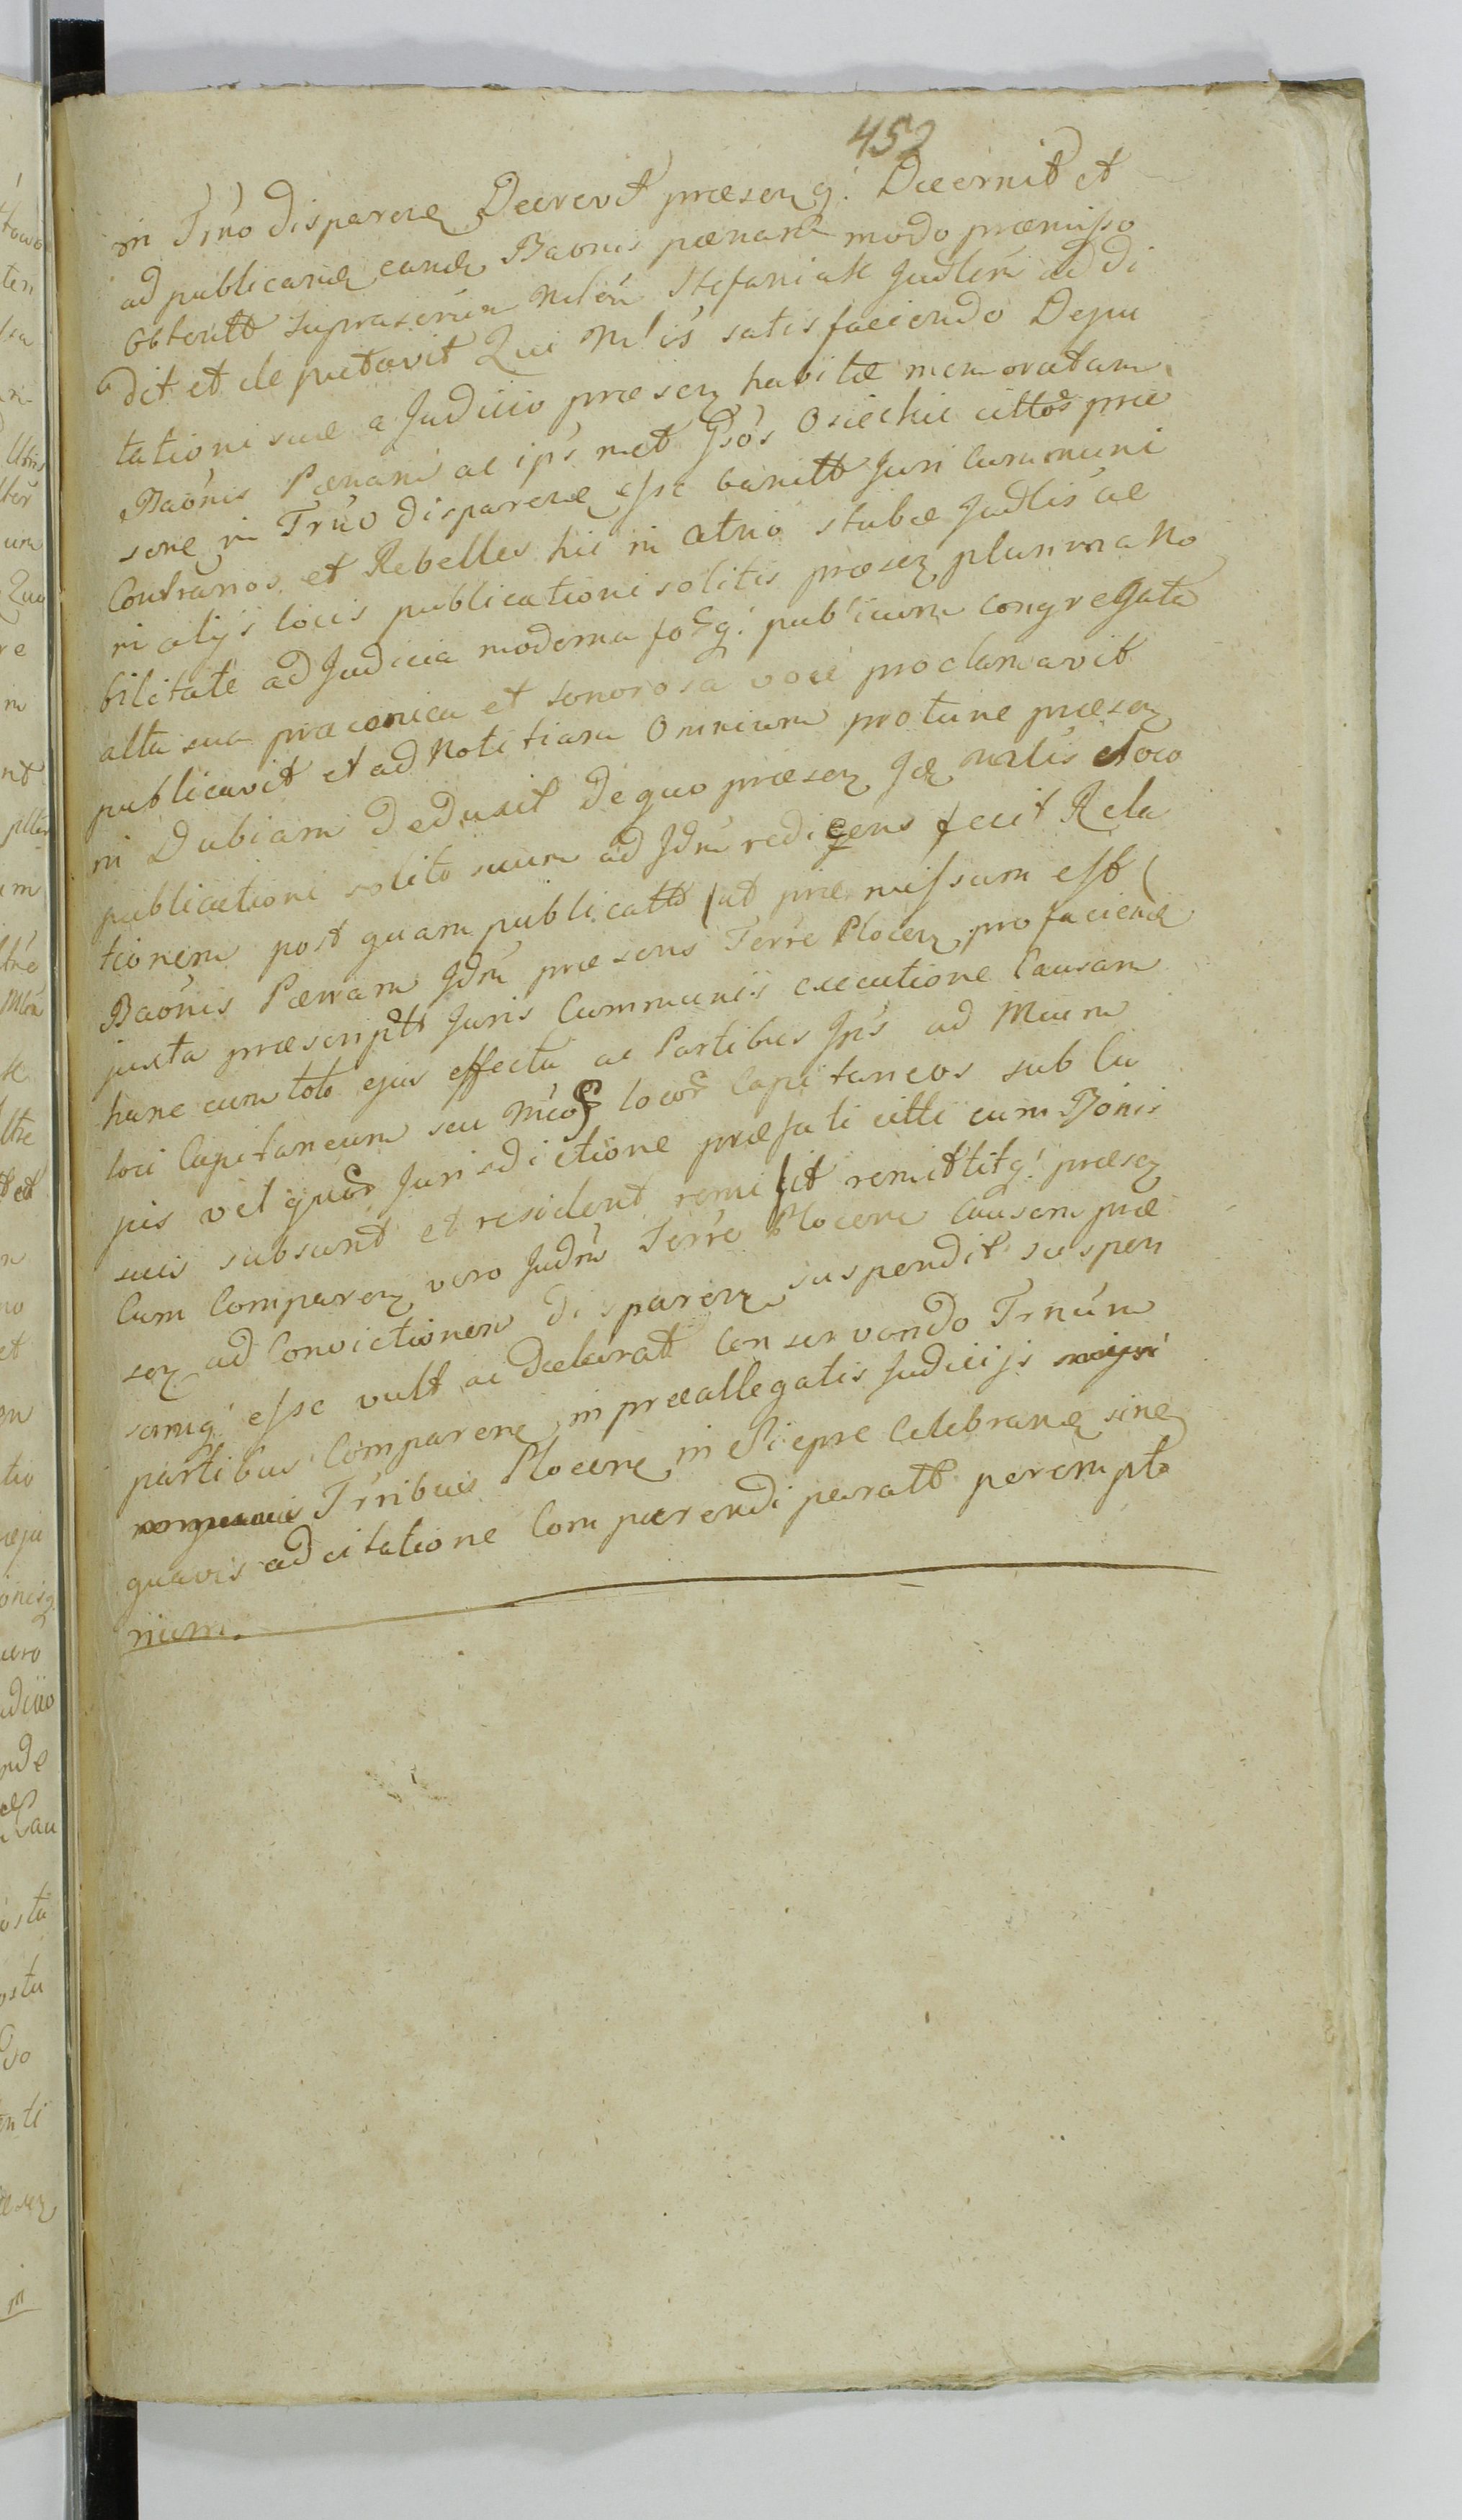 452
in Trno disparenę Decrevit præsenq. Decernit et
ad publicandę eandę Baonis pœnam modo præmisso
obtentt suprascrin Mlén Stefaniak Judlém addi
dit et deputavit Qui Mlis satisfaciendo Depu
tationi suæ a Judicio præsenę habitæ memoratam
Baónis Pœnam ac ips met Gsós Osiechie cittos præ
senę in Trno disparenę esse banitt Juri Communi
Contrarios et Rebelles hic in atrio stubæ Judlis ac
in alijs locis publicationi solitis præsenę plurima No
bilitate ad Judicia moderna foq. publicum congregata
alta sua præconica et sonorosa voce proclamavit
publicavit et ad Notitiam Omnium protunc præsenę
in Dubiam Deduxit De quo præsenę Ję Mlis e loco
publicationi solito suum ad Jdm redigens fecit Rela
tionem post quam publicatt (ut præmissum est(
Baónis Pœnam Jdm præsens Terre Plocenę pro faciendę
juxta præscriptt Juris Communis executione Causam
hanc cum toto ejus effectu ac Partibus Jps ad Mcum
loci Capitaneum seu Mcos locor Capitaneos sub Cu
jus vel quor Jurisdictione præfati citti cum Bónis
suis subsunt et resident remisit remittitq. præsenę
Cum Comparenę vero Judm Terre Plocene Causam præ
senę ad Convictionem disparenę suspendit suspen
samq. esse vult ac declarat Conservando Trnúm
partibus Comparenę in præallegatis Judicijs
Trnibus Plocenę in Siepre Celebrandę sine
quavis adcitatione Comparendi paratt perempto
rium.